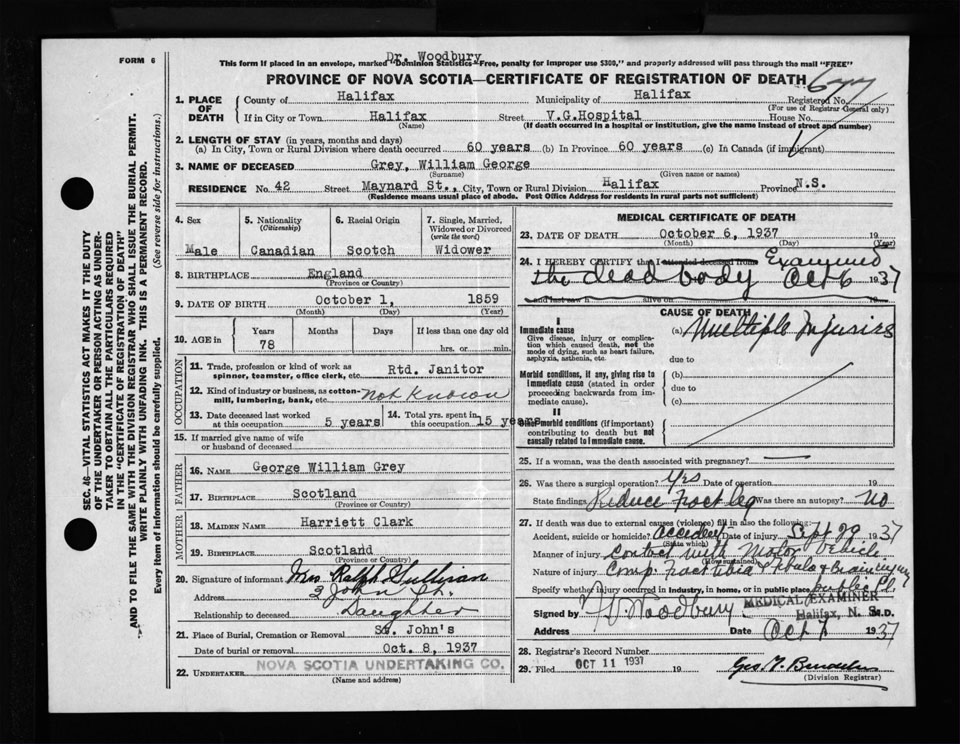 FORM 6
Dr. Woodbury
This form if placed in an envelope, marked "Dominion Statistics—Free, penalty for improper use $300," and properly addressed will pass through the mail "FREE"
PROVINCE OF NOVA SCOTIA—CERTIFICATE OF REGISTRATION OF DEATH
677
1. PLACE OF DEATH
County of Halifax Municipality of Halifax Registered No.
(For use of Registrar General only)
If in City or Town Halifax Street V.G.Hospital House No.
(Name) (If death occurred in a hospital or institution, give the name instead of street and number)
2. LENGTH OF STAY (in years, months and days)
(a) In City, Town or Rural Division where death occurred 60 years (b) In Province 60 years (c) In Canada (if immigrant)
3. NAME OF DECEASED Grey, William George
(Surname) (Given name or names)
RESIDENCE No. 42 Street Maynard St., City, Town or Rural Division Halifax Province N.S.
(Residence means usual place of abode. Post Office Address for residents in rural parts not sufficient)
4. Sex
Male
5. Nationality
(Citizenship)
Canadian
6. Racial Origin
Scotch
7. Single, Married, Widowed or Divorced
(write the word)
Widower
8. BIRTHPLACE England
(Province or Country)
9. DATE OF BIRTH October 1, 1859
(Month) (Day) (Year)
10. AGE
Years Months Days If less than one day old
78 hrs. or min.
OCCUPATION
11. Trade, profession or kind of work as spinner, teamster, office clerk, etc. Rtd. Janitor
12. Kind of industry or business, as cotton-mill, lumbering, bank, etc. Not Known
13. Date deceased last worked at this occupation 5 years
14. Total yrs. spent in this occupation 15 years
15. If married give name of wife or husband of deceased
FATHER
16. NAME George William Grey
17. BIRTHPLACE Scotland
(Province or Country)
MOTHER
18. MAIDEN NAME Harriett Clark
19. BIRTHPLACE Scotland
(Province or Country)
20. Signature of informant Mrs Ralph Sullivan
Address 2 John St.
Relationship to deceased Daughter
21. Place of Burial, Cremation or Removal St. John's
Date of burial or removal Oct. 8, 1937
22. UNDERTAKER NOVA SCOTIA UNDERTAKING CO.
(Name and address)
MEDICAL CERTIFICATE OF DEATH
23. DATE OF DEATH October 6, 1937 19
(Month) (Day) (Year)
24. I HEREBY CERTIFY that I attended deceased from Examined
the dead body Oct 6 1937
and last saw h alive on 19
CAUSE OF DEATH
I
Immediate cause
Give disease, injury or complication which caused death, not the mode of dying, such as heart failure, asphyxia, asthenia, etc.
(a) Multiple Injuries
due to
Morbid conditions, if any, giving rise to immediate cause (stated in order proceeding backwards from immediate cause).
(b)
due to
(c)
II
Other morbid conditions (if important) contributing to death but not causally related to immediate cause.
25. If a woman, was the death associated with pregnancy?
26. Was there a surgical operation? Yes Date of operation 19
State findings Reduce fract leg Was there an autopsy? No
27. If death was due to external causes (violence) fill in also the following:
Accident, suicide or homicide? Accident Date of injury Sept 29 1937
(State which)
Manner of injury Contact with Motor Vehicle
(How sustained)
Nature of injury Comp. fract tibia & fibula & Brain injury
Specify whether injury occurred in industry, in home, or in public place. public pl.
Signed by Woodbury MEDICAL EXAMINER M.D.
Halifax, N. S.
Address Date Oct 7 1937
28. Registrar's Record Number
29. Filed OCT 11 1937 19
(Division Registrar)
SEC. 46—VITAL STATISTICS ACT MAKES IT THE DUTY
OF THE UNDERTAKER OR PERSON ACTING AS UNDER-
TAKER TO OBTAIN ALL THE PARTICULARS REQUIRED
IN THE "CERTIFICATE OF DEATH"
AND TO FILE THE SAME WITH THE DIVISION REGISTRAR WHO SHALL ISSUE THE BURIAL PERMIT.
WRITE PLAINLY WITH UNFADING INK. THIS IS A PERMANENT RECORD.
Every item of information should be carefully supplied. (See reverse side for instructions.)